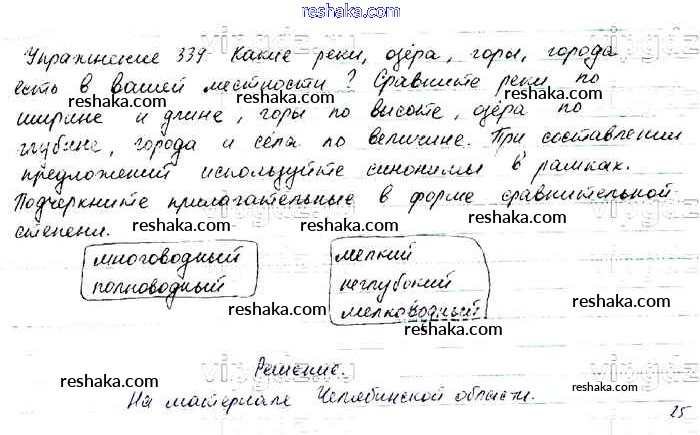 reshaka.com
Упражнение 339 Какие реки, озёра, горы, города
есть в вашей местности? Сравните реки по
reshaka.com reshaka.com reshaka.com
ширине и длине, горы по высоте, озёра по
глубине, города и сёла по величине. При составлении
reshaka.com reshaka.com reshaka.com
предложений используйте синонимы в рамках.
Подчеркните прилагательные в форме сравнительной
reshaka.com reshaka.com reshaka.com
степени.
многоводный мелкий
полноводный неглубокий
мелководный
reshaka.com reshaka.com reshaka.com
Решение.
reshaka.com reshaka.com reshaka.com
На материале Челябинской области.
25
reshaka.com reshaka.com reshaka.com